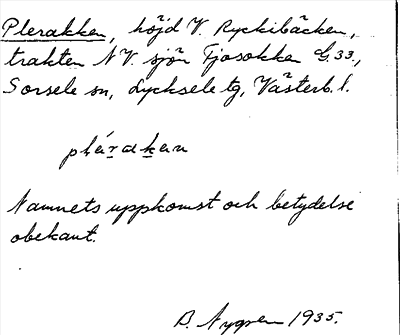 Plerakken, höjd V. Ryckibäcken,
trakten N V. sjön Tjosokken G.33.,
Sorsele sn, Lycksele tg, Västerb. l.
plèrakan
Namnets uppkomst och betydelse
obekant.
B. Nygren 1935.